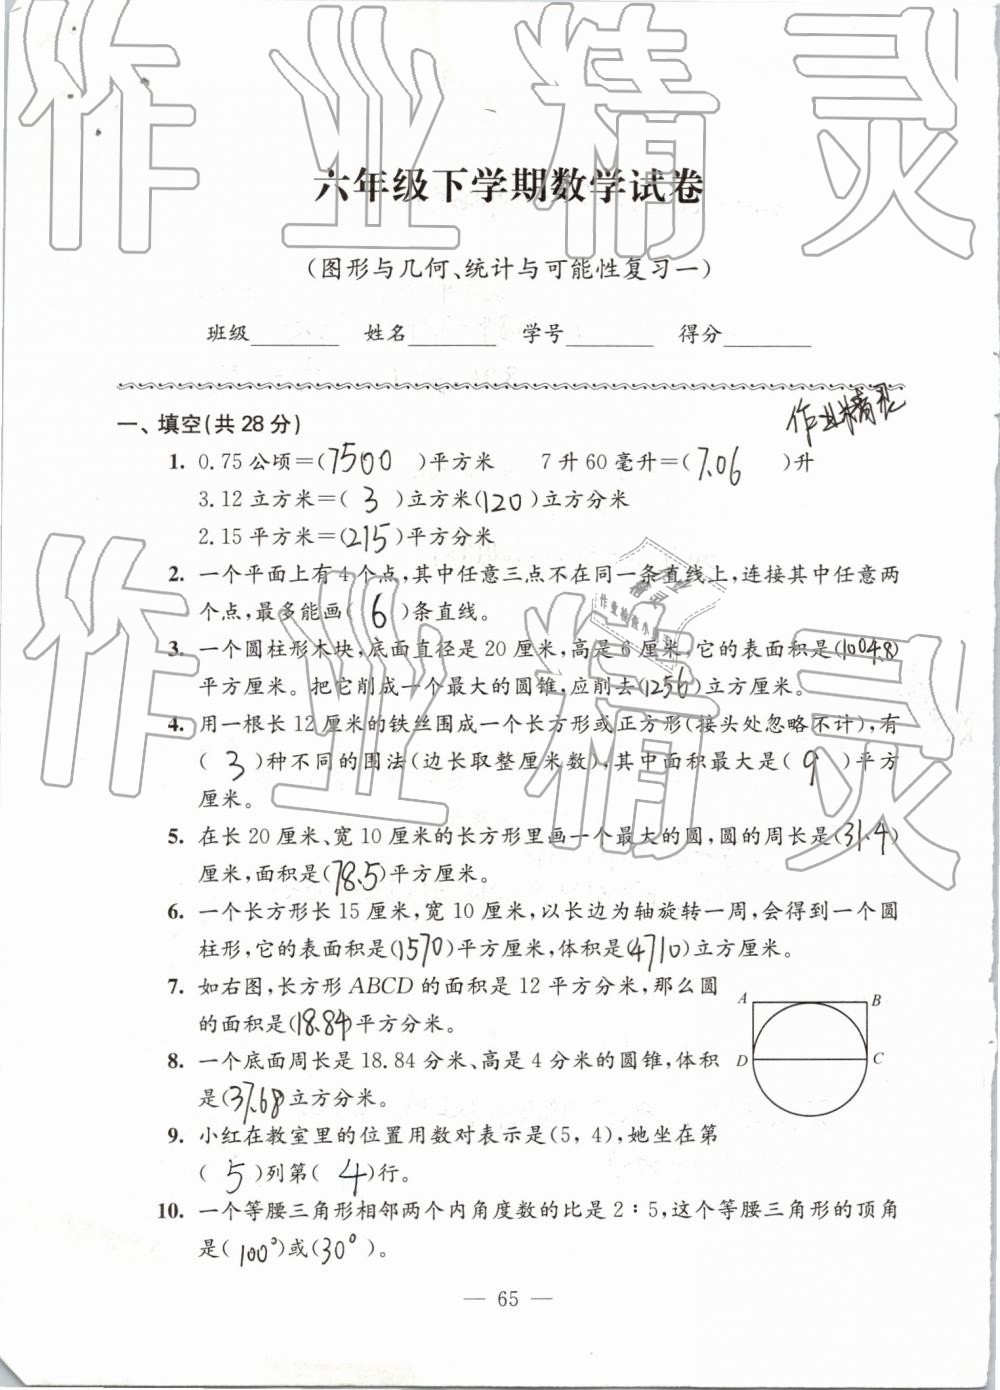 作业精灵
六年级下学期数学试卷
(图形与几何、统计与可能性复习一)
班级________ 姓名________ 学号________ 得分________
作业精灵
一、填空(共28分)
1. 0.75公顷=(7500)平方米 7升60毫升=(7.06)升
3.12立方米=(3)立方米(120)立方分米
2.15平方米=(215)平方分米
2. 一个平面上有4个点,其中任意三点不在同一条直线上,连接其中任意两
个点,最多能画(6)条直线。
作业
精灵
作业检查小帮手
3. 一个圆柱形木块,底面直径是20厘米,高是6厘米,它的表面积是(1004.8)
平方厘米。把它削成一个最大的圆锥,应削去(1256)立方厘米。
作业精灵
4. 用一根长12厘米的铁丝围成一个长方形或正方形(接头处忽略不计),有
(3)种不同的围法(边长取整厘米数),其中面积最大是(9)平方
厘米。
5. 在长20厘米、宽10厘米的长方形里画一个最大的圆,圆的周长是(31.4)
厘米,面积是(78.5)平方厘米。
6. 一个长方形长15厘米,宽10厘米,以长边为轴旋转一周,会得到一个圆
柱形,它的表面积是(1570)平方厘米,体积是(4710)立方厘米。
7. 如右图,长方形ABCD的面积是12平方分米,那么圆
的面积是(18.84)平方分米。
A B
D C
8. 一个底面周长是18.84分米、高是4分米的圆锥,体积
是(37.68)立方分米。
9. 小红在教室里的位置用数对表示是(5, 4),她坐在第
(5)列第(4)行。
10. 一个等腰三角形相邻两个内角度数的比是2:5,这个等腰三角形的顶角
是(100°)或(30°)。
— 65 —